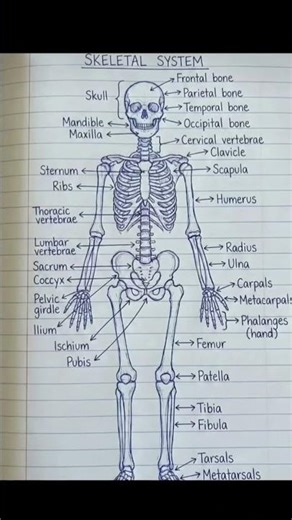 SKELETAL SYSTEM
Frontal bone
Skull
Parietal bone
Temporal bone
Mandible
Occipital bone
Maxilla
Cervical vertebrae
Clavicle
Sternum
Scapula
Ribs
Humerus
Thoracic
vertebrae
Lumbar
vertebrae
Radius
Sacrum
Ulna
Coccyx
Carpals
Pelvic
girdle
Metacarpals
Ilium
Phalanges
(hand)
Ischium
Femur
Pubis
Patella
Tibia
Fibula
Tarsals
Metatarsals